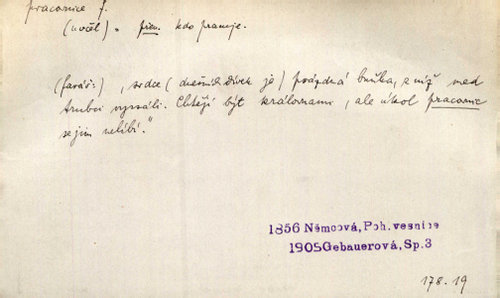 pracovnice f.
(včel) „ přen. kdo pracuje.
(farář:) „srdce (dnešních dívek je) prázdná buňka, z níž med
trubci vyssáli. Chtějí být královnami, ale úkol pracovnic
se jim nelíbí."
1856 Němcová, Poh. vesnice
1905 Gebauerová, Sp.3
178.19